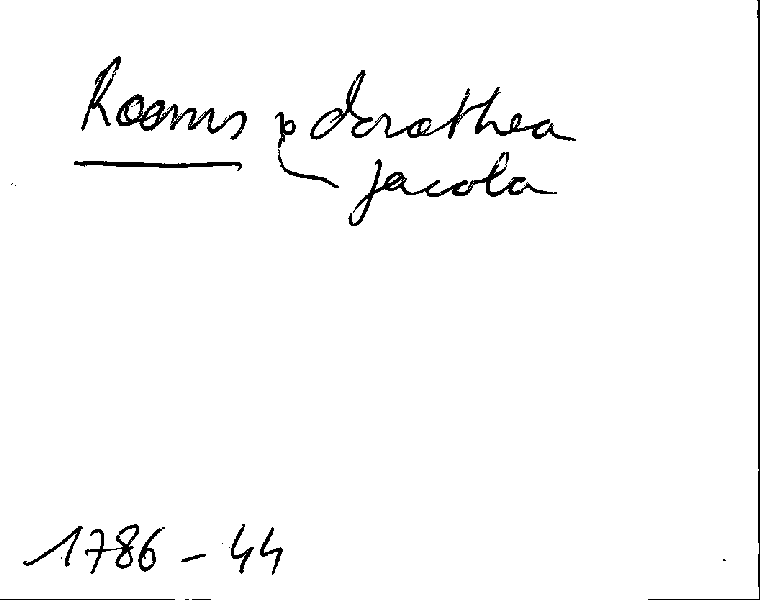 Rooms dorothea
jacoba
1786 - 44